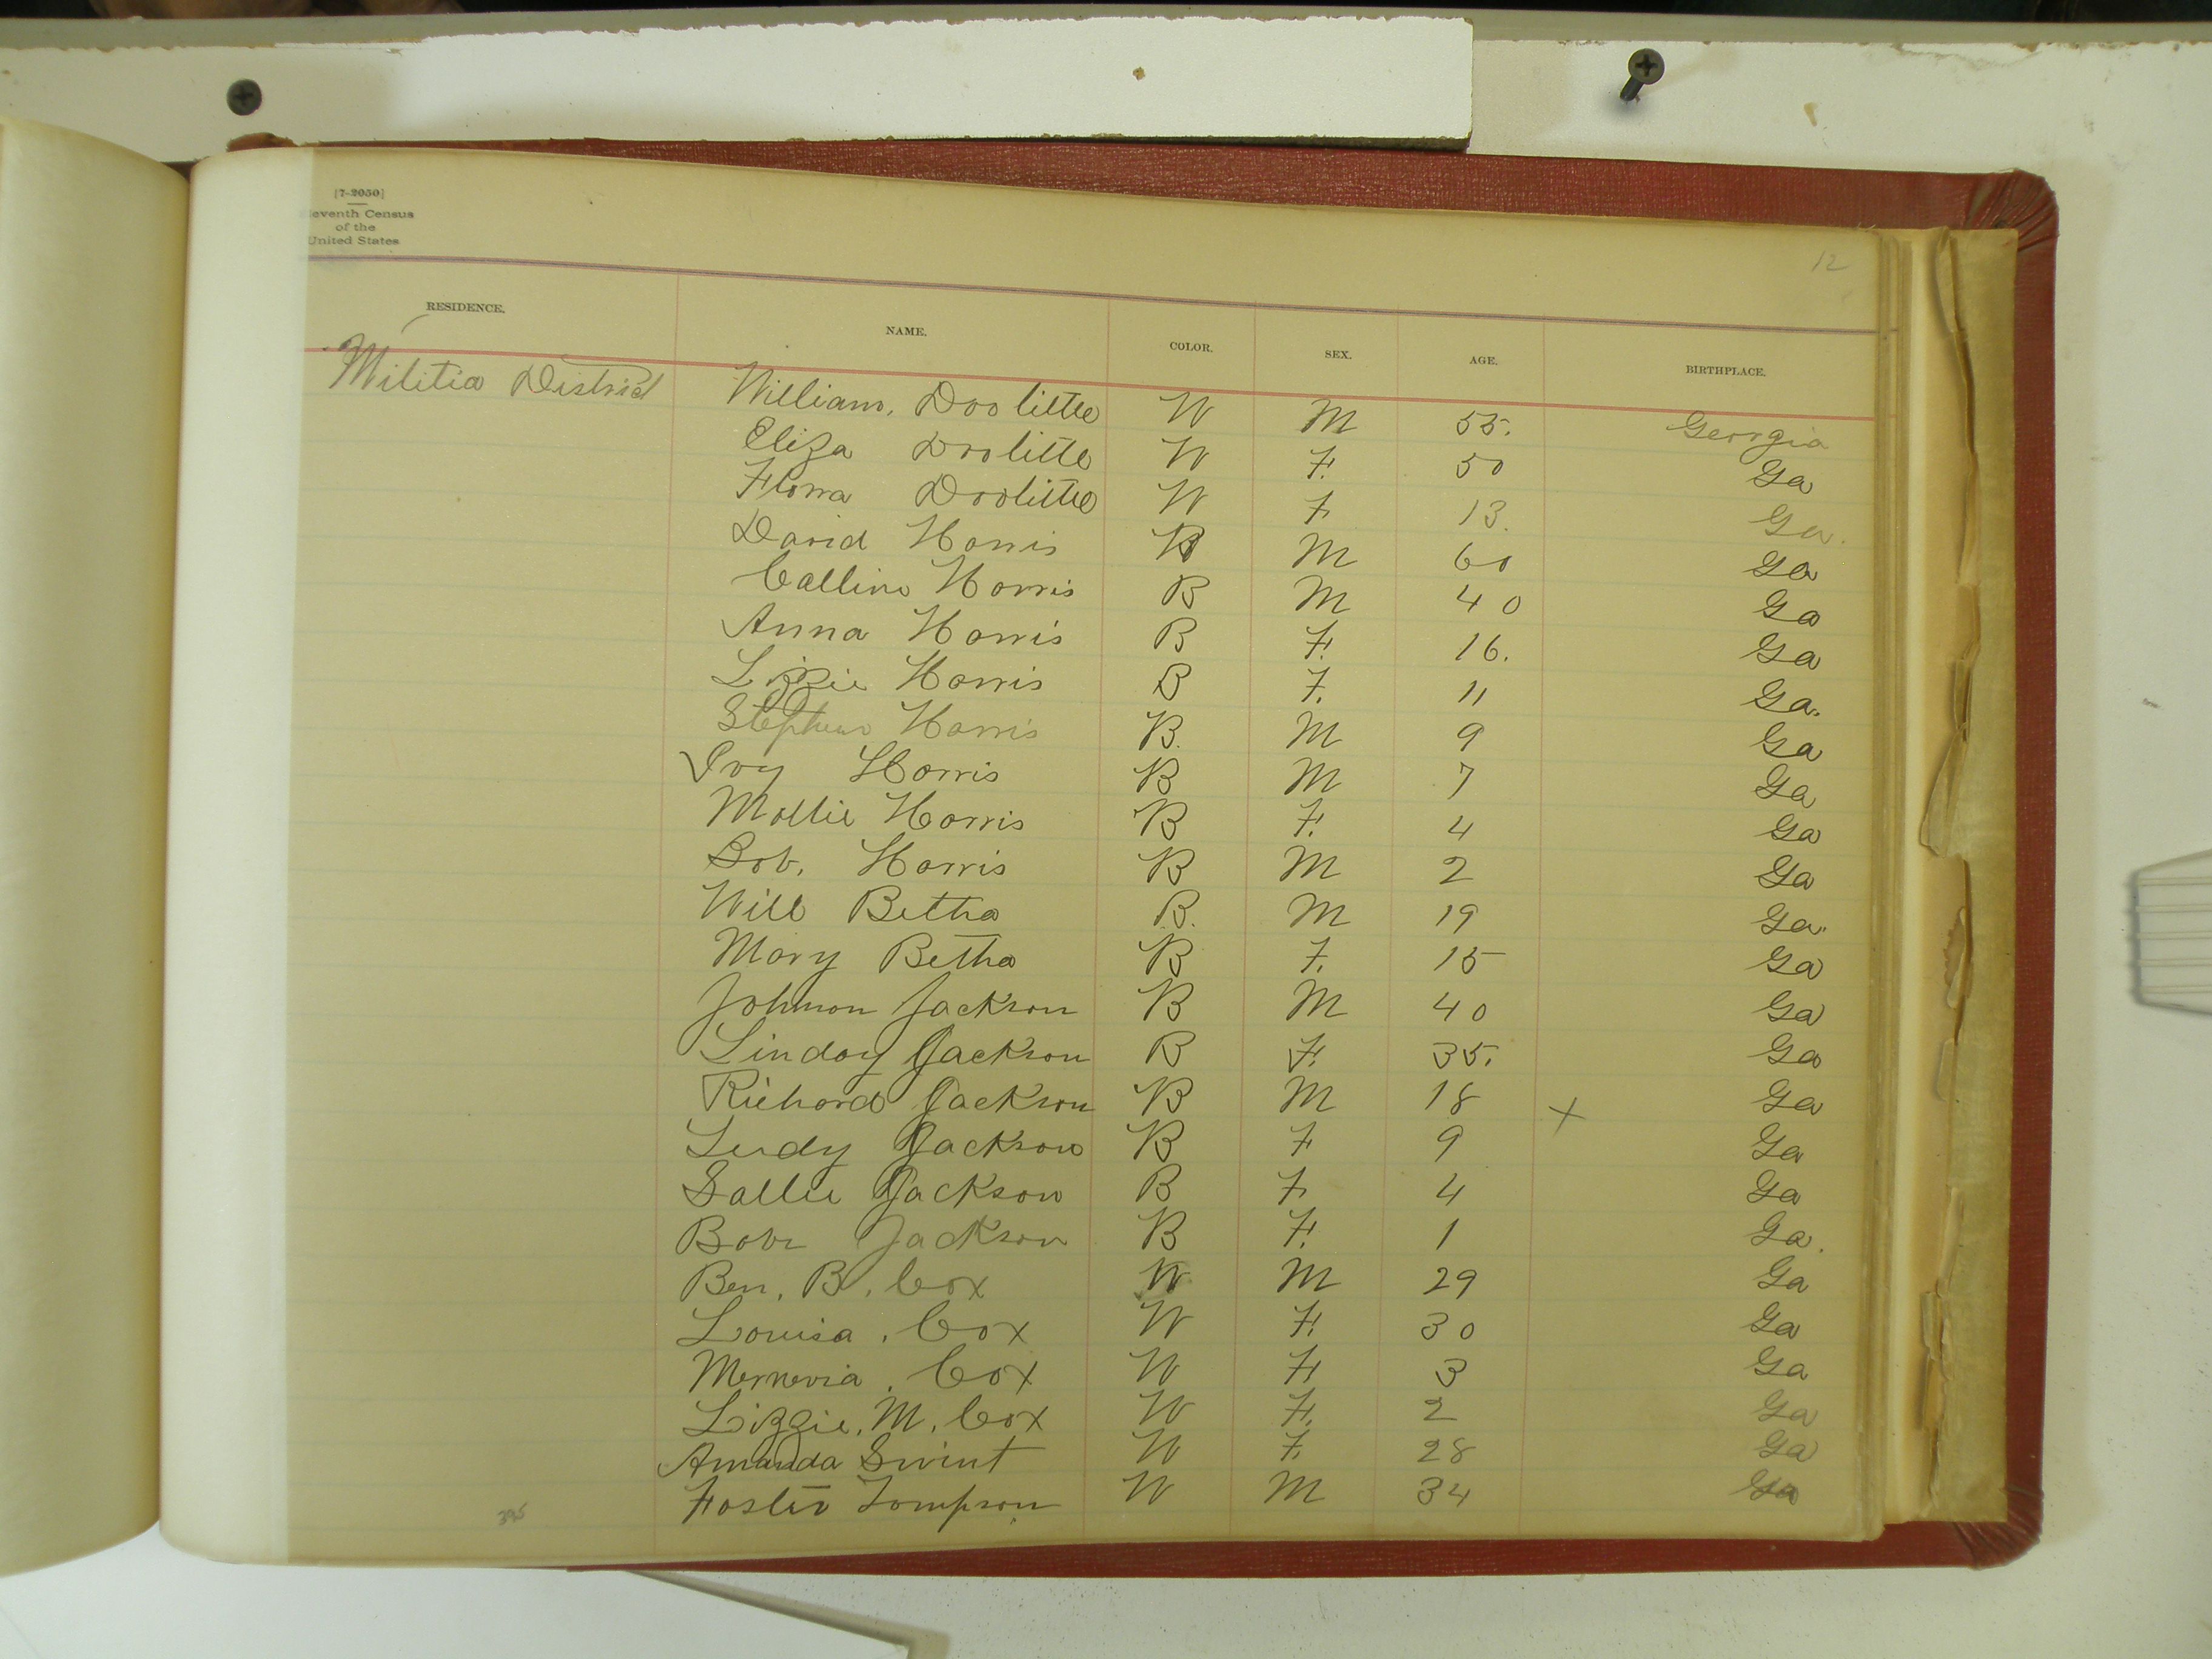 [7-2050]
Eleventh Census
of the
United States
12
RESIDENCE. NAME. COLOR. SEX. AGE. BIRTHPLACE.
Militia District William. Doolittle W M 55. Georgia
Eliza Doolittle W F. 50 Ga
Flora Doolittle W F 13. Ga.
David Harris B M 60 Ga
Calline Harris B M 40 Ga
Anna Harris B F. 16. Ga
Lizzie Harris B F. 11 Ga.
Stephen Harris B. M 9 Ga
Ivy Harris B M 7 Ga
Mollie Harris B F. 4 Ga
Bob. Harris B M 2 Ga
Will Betha B. M 19 Ga.
Mary Betha B F. 15 Ga
Johnson Jackson B M 40 Ga
Linday Jackson B F 35. Ga
Richard Jackson B M 18 x Ga
Ludy Jackson B F 9 Ga
Sallie Jackson B F 4 Ga
Jackson B F. 1 Ga.
Ben. B. Cox W M 29 Ga
Louisa. Cox W F. 30 Ga
Mernervia. Cox W F 3 Ga
Lizzie. M. Cox W F. 2 Ga
Amanda Swint W F. 28 Ga
Foster Tompson W M 34 Ga
395